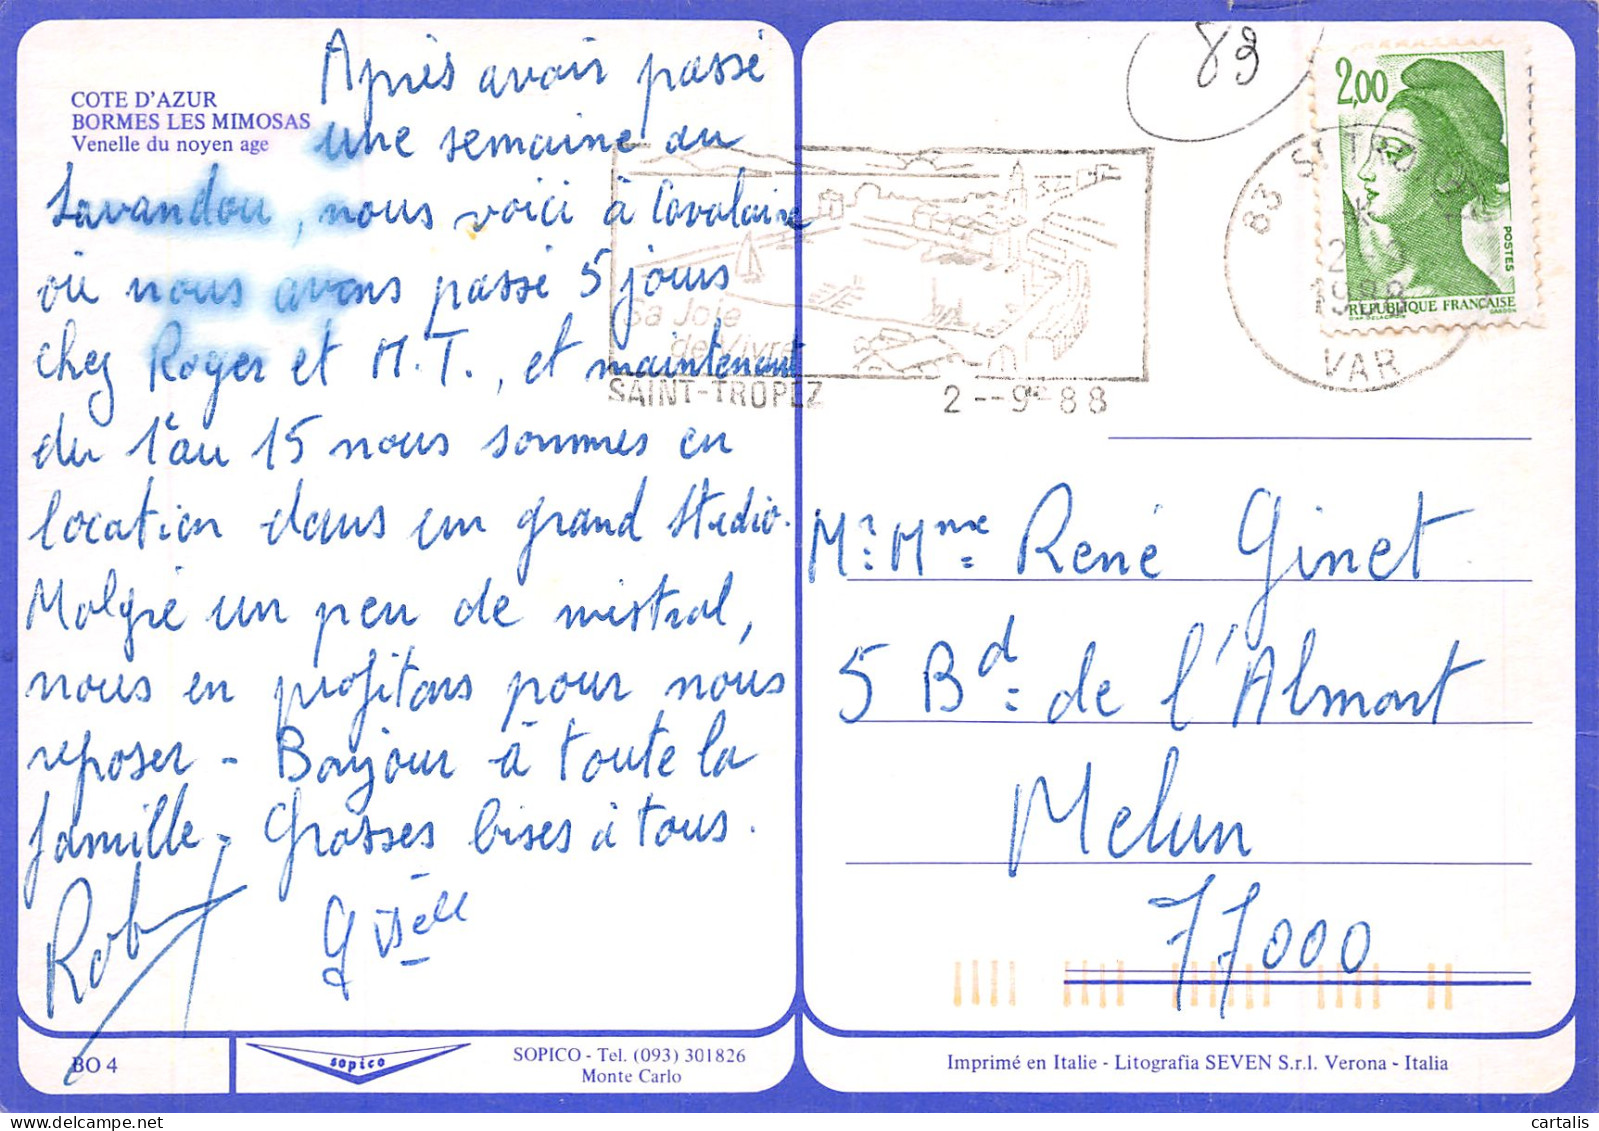 COTE D'AZUR
BORMES LES MIMOSAS
Venelle du noyen age
Après avoir passé
une semaine au
Lavandou, nous voici à Cavalaire
où nous avons passé 5 jours
chez Roger et M.T., et maintenant
du 1er au 15 nous sommes en
location dans un grand studio.
Malgré un peu de mistral,
nous en profitons pour nous
reposer - Bonjour à toute la
famille - Grosses bises à tous.
Rob
Gisèle
BO 4
sopico
SOPICO - Tel. (093) 301826
Monte Carlo
89
2,00
POSTES
REPUBLIQUE FRANÇAISE
83 ST TROPEZ
1988
VAR
Sa Joie
de Vivre
SAINT-TROPEZ
2--9-88
Mr. Mme René Ginet
5 Bd de l'Almont
Melun
77000
Imprimé en Italie - Litografia SEVEN S.r.l. Verona - Italia
cartalis